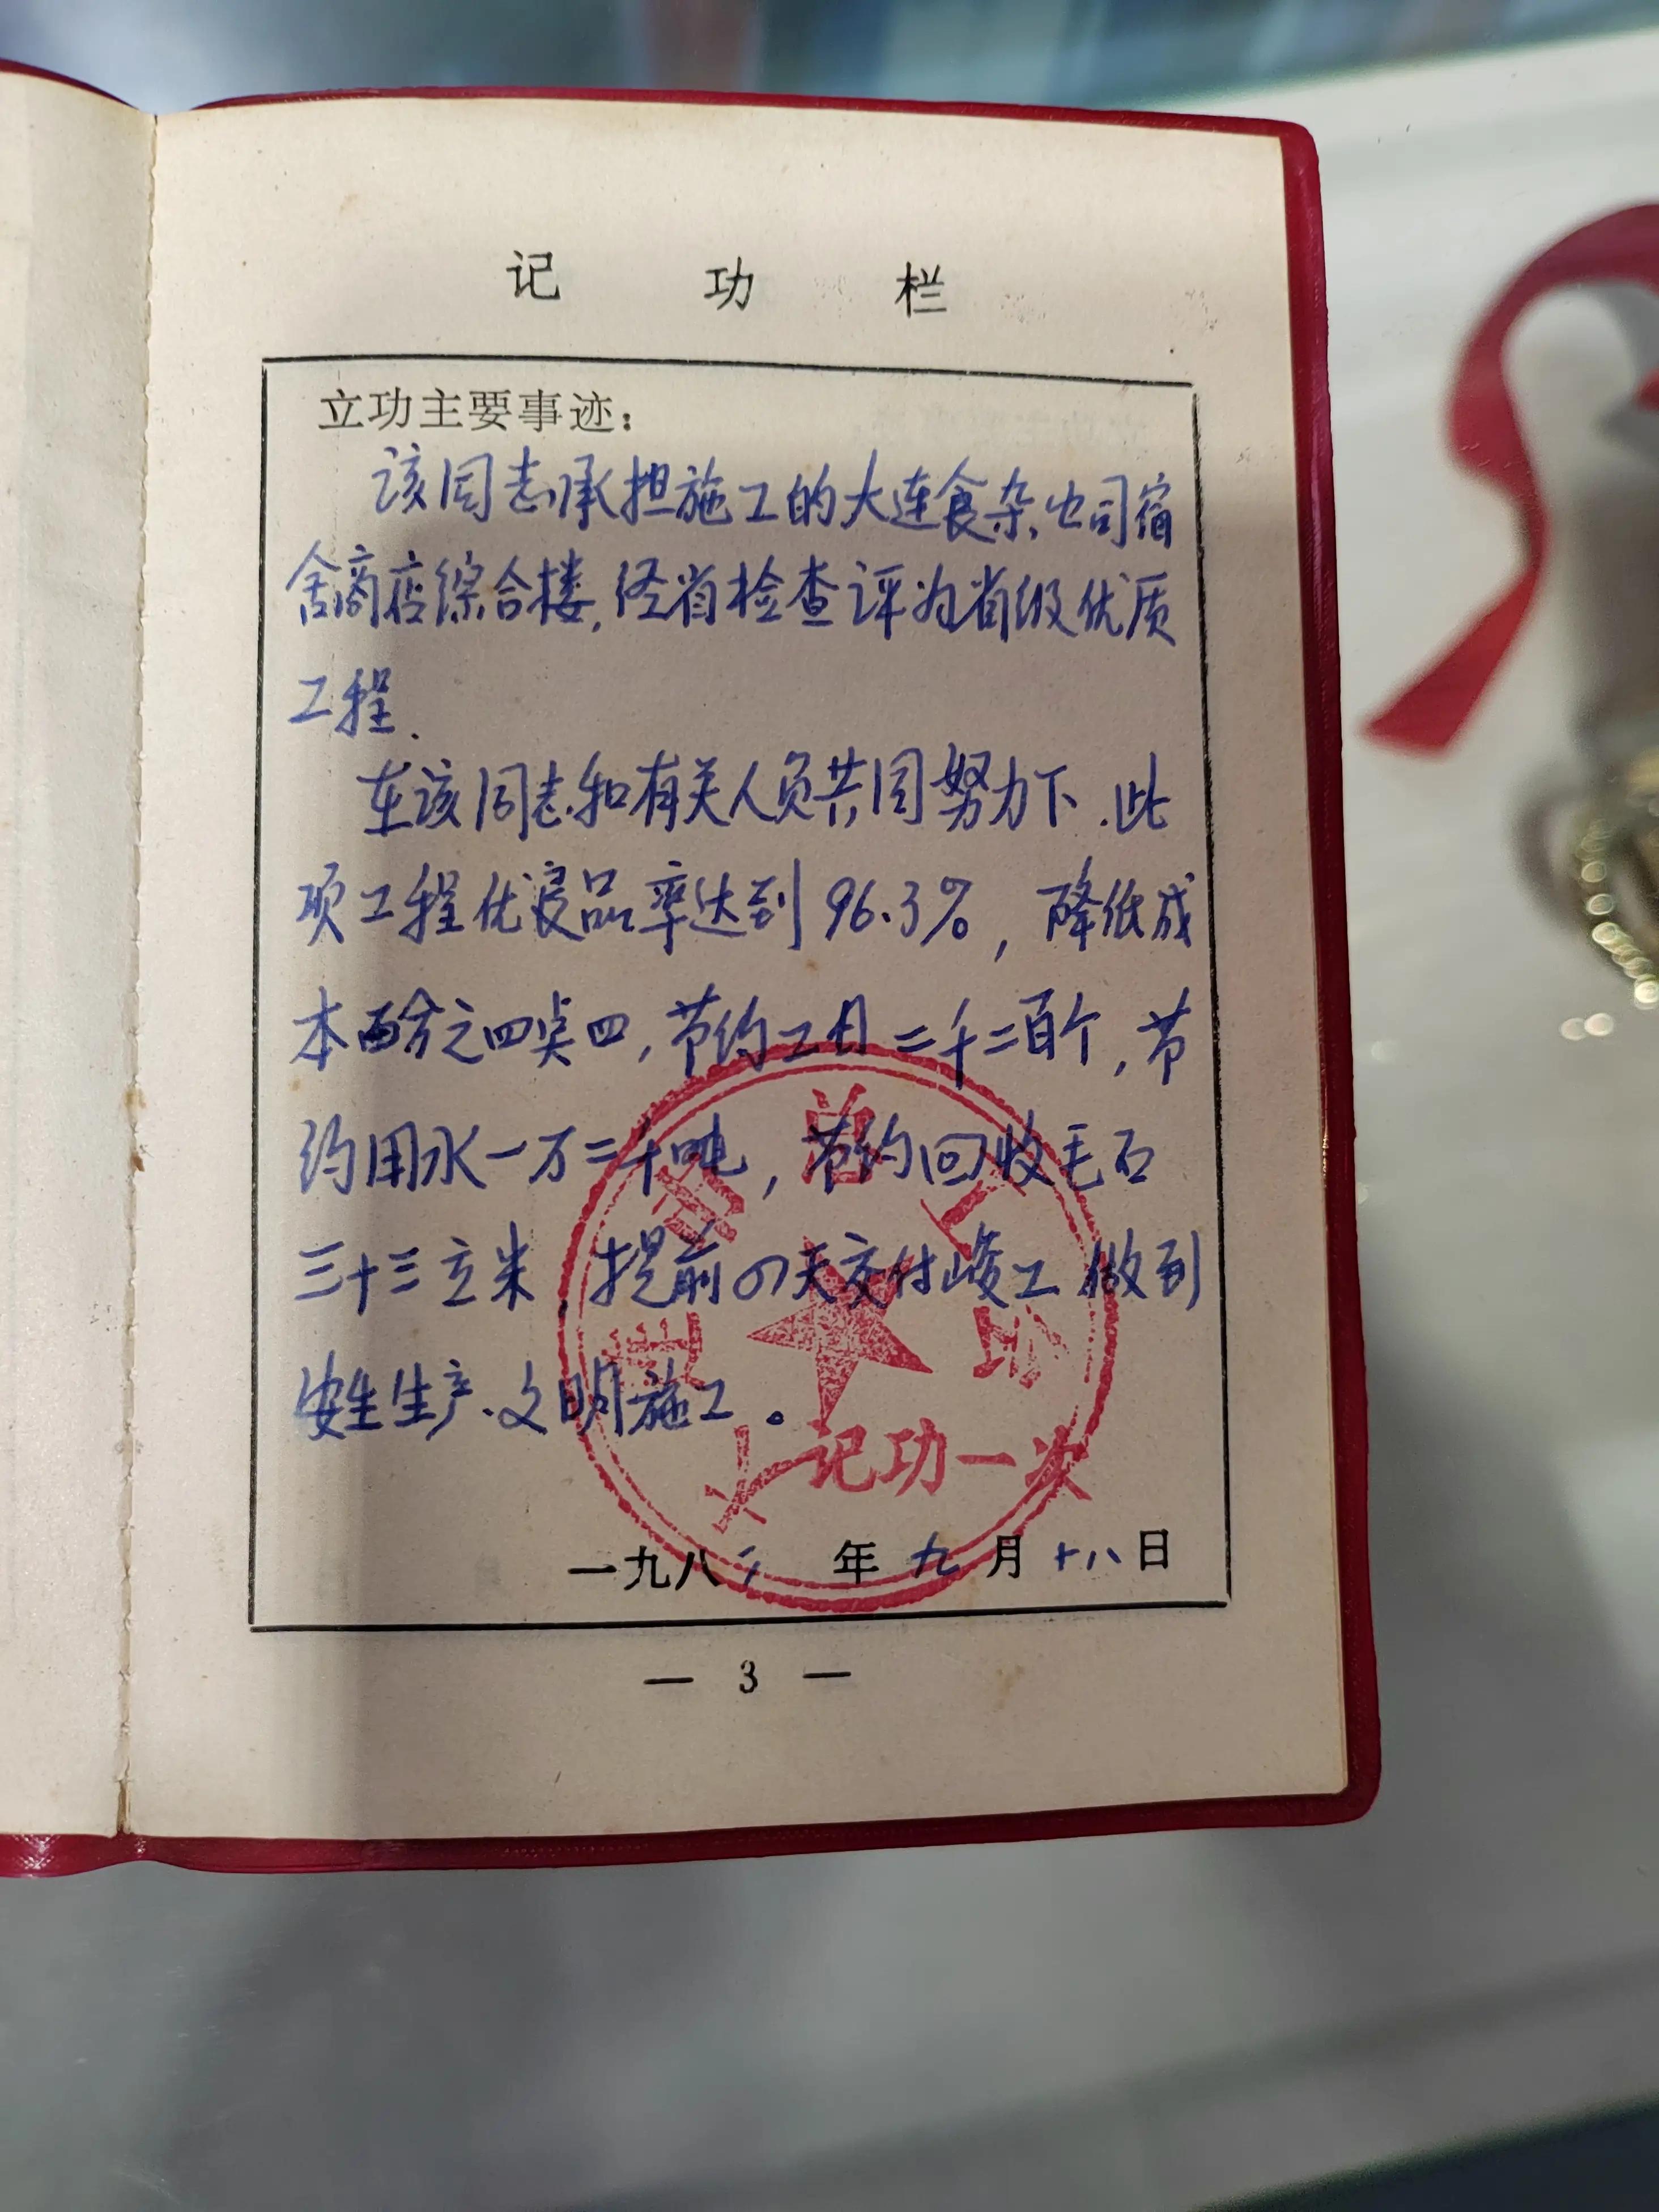 记功栏
立功主要事迹：
该同志承担施工的大连食杂公司宿
舍商店综合楼，经省检查评为省级优质
工程.
在该同志和有关人员共同努力下.此
项工程优良品率达到96.3%，降低成
本百分之四点四,节约工日二千二百个,节
约用水一万二千吨，节约回收毛石
三十三立米.提前四天交付峻工 做到
安全生产.文明施工。
记功一次
一九八 年九月十八日
— 3 —